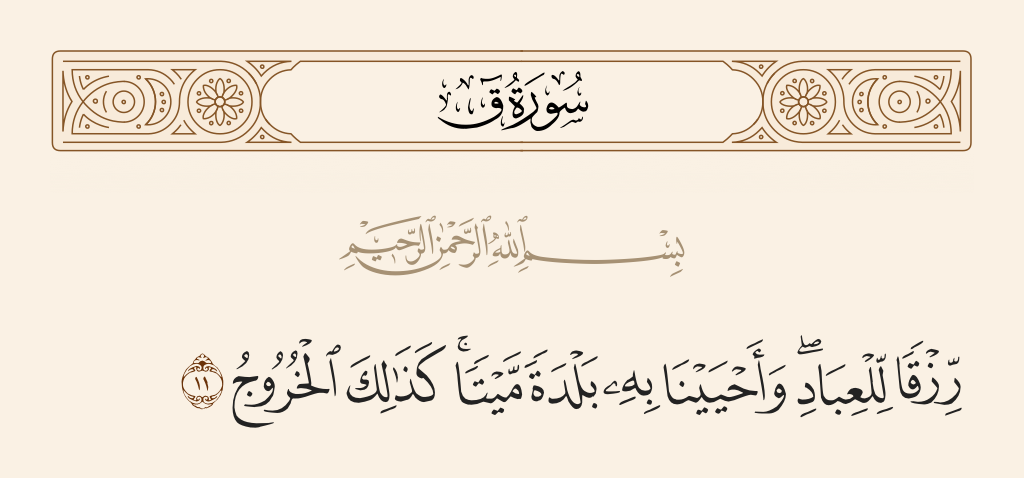 سُورَةُ قٓ
بِسْمِ ٱللَّهِ ٱلرَّحْمَٰنِ ٱلرَّحِيمِ
رِّزْقًا لِّلْعِبَادِ ۖ وَأَحْيَيْنَا بِهِۦ بَلْدَةً مَّيْتًا ۚ كَذَٰلِكَ ٱلْخُرُوجُ ١١